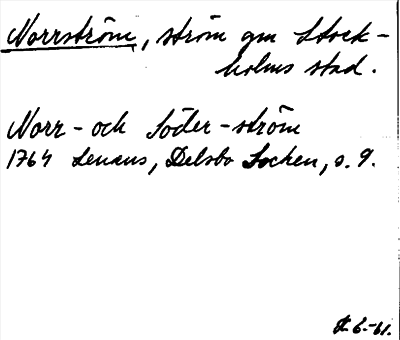 Norrström, ström gm Stock-
holms stad.
Norr- och Söder-ström
1764 Lenaus, Delsbo Socken, s. 9.
6.-61.